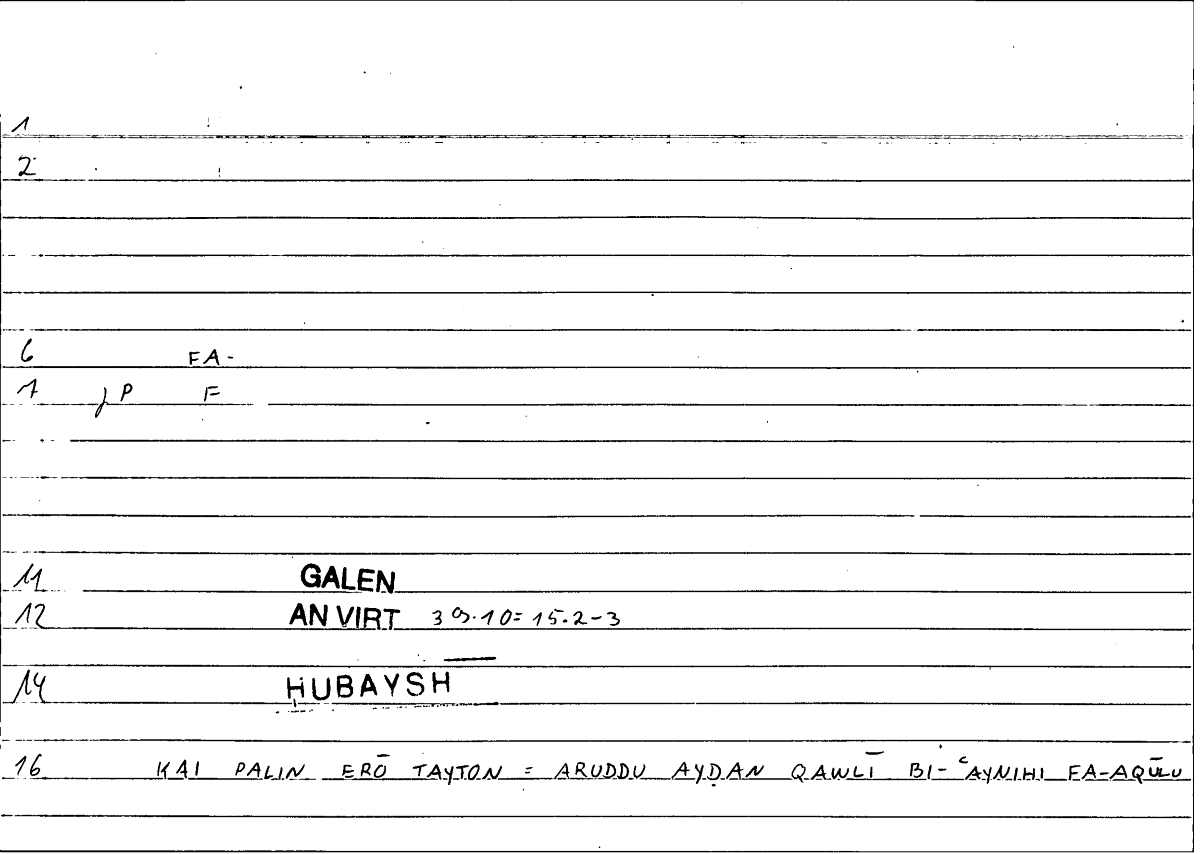 1
2
6 FA-
1 P F
11 GALEN
12 AN VIRT 39.10=15.2-3
14 ḤUBAYSH
16 KAI PALIN ERŌ TAYTON = ARUDDU AYḌAN QAWLĪ BI-ʿAYNIHI FA-AQŪLU